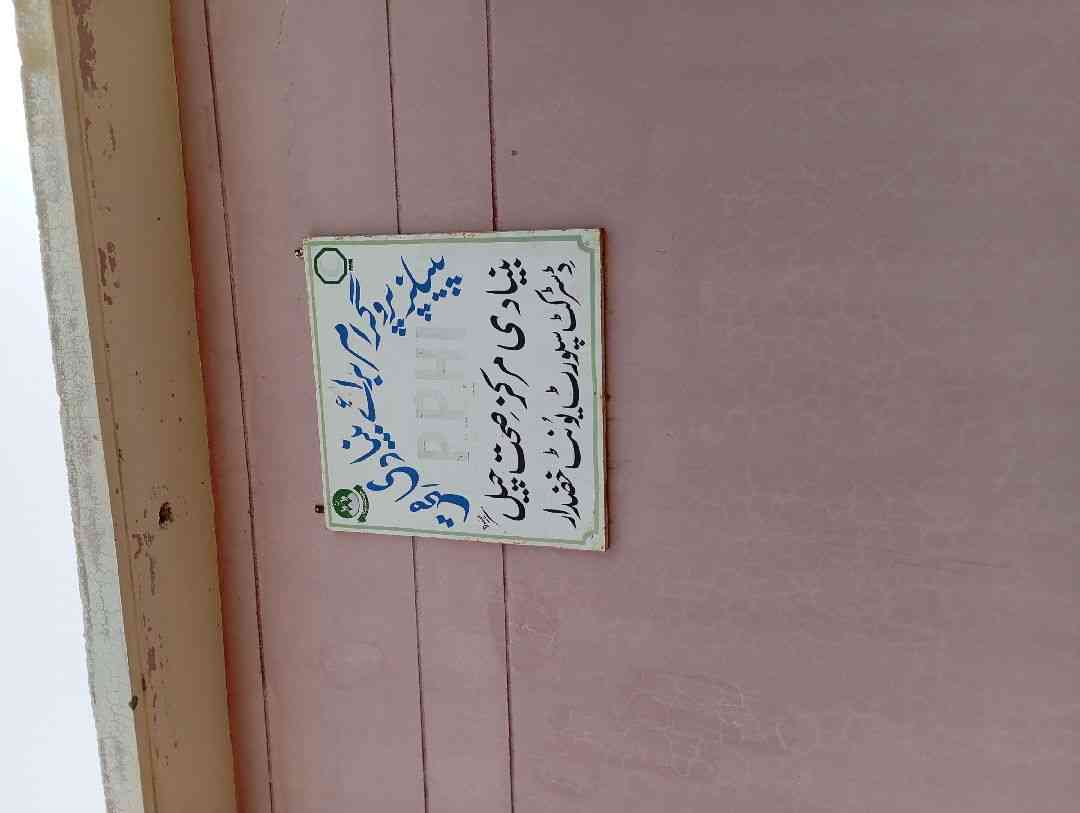 پیپلیز پروگرام برائے بنیادی صحت
PPHI
بنیادی مرکز صحت چپل
ڈسٹرکٹ سپورٹ یونٹ خضدار